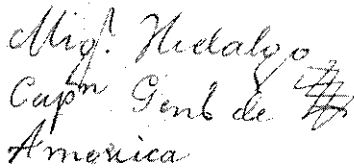 Migl. Hidalgo
Capn Genl de
America